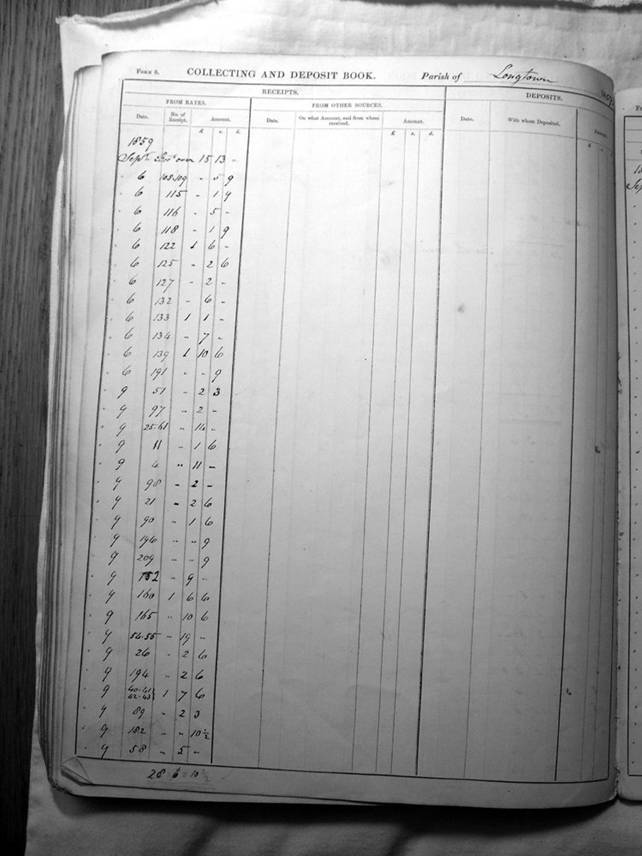 FORM 8. COLLECTING AND DEPOSIT BOOK. Parish of Longtown
RECEIPTS. DEPOSITS.
FROM RATES. FROM OTHER SOURCES.
Date. No. of Receipt. Amount. Date. On what Amount, and from whom received. Amount. Date. With whom Deposited.
£ s. d. £ s. d.
1859
Sept. over 15 13 -
6 108.109 - 5 9
6 115 - 1
6 116 - 5 -
6 118 - 1 9
6 122 1 6 -
6 125 - 2 6
6 127 - 2 -
6 132 - 6 -
6 133 1 1 -
6 134 - 7 -
6 139 1 10 6
6 191 - - 9
9 51 - 2 3
9 97 - 2 -
9 25.61 -
9 11 - 1 6
9 4 " 11 -
9 98 - 2 -
9 21 - 2 6
9 90 - 1 6
9 196 - - 9
9 209 - - 9
9 - 9 -
9 160 1 6 6
9 165 - 10 6
9 54.55 - 19 -
9 26 - 2 6
9 194 - 2 6
9 40.41 42.43 1 7 6
9 89 - 2 3
9 182 - - 10½
9 58 - 5 -
28 6 10½